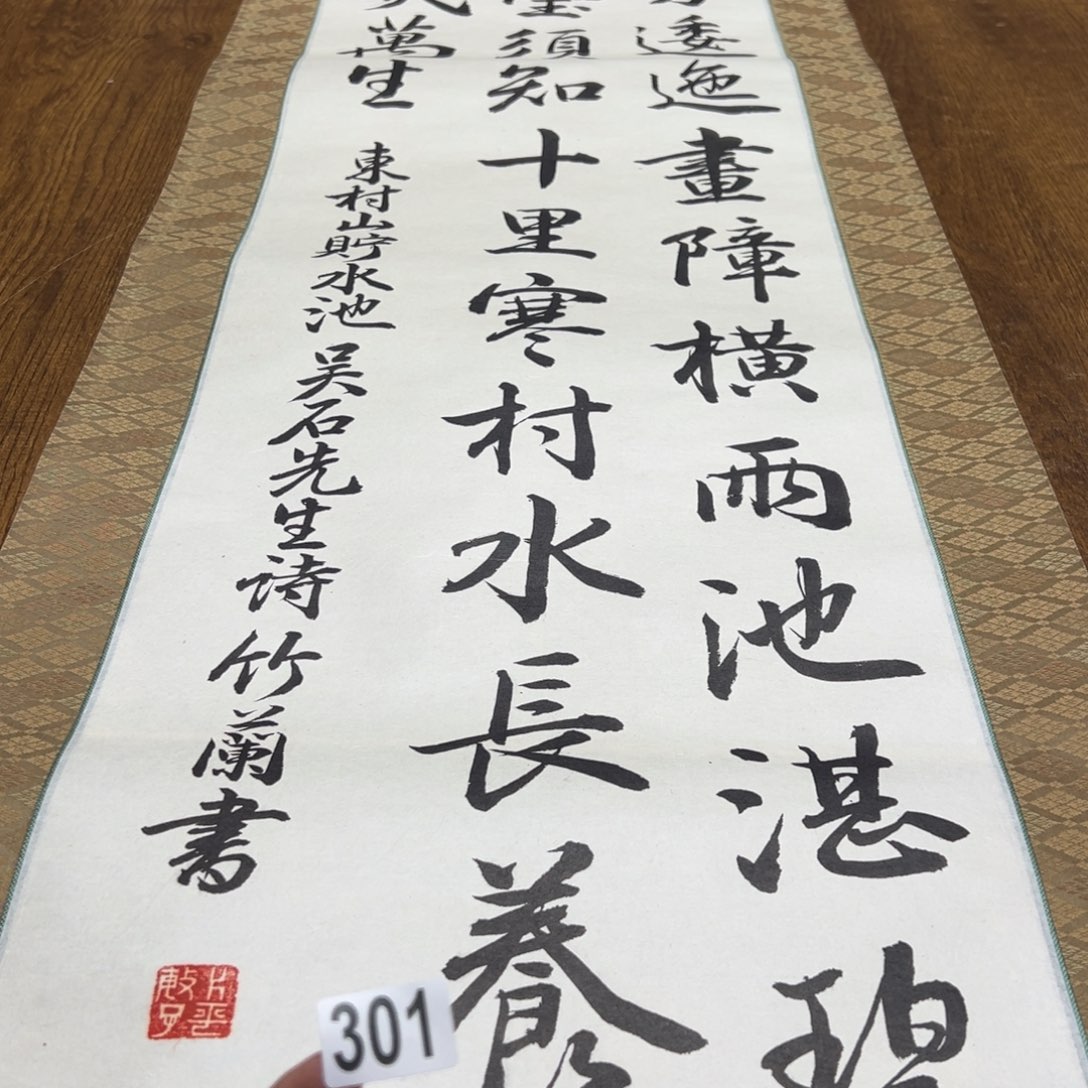 逶迤畫障橫雨池湛碧
須知十里寒村水長養
萬生
東村山貯水池 吴石先生诗 竹蘭書
片平
301